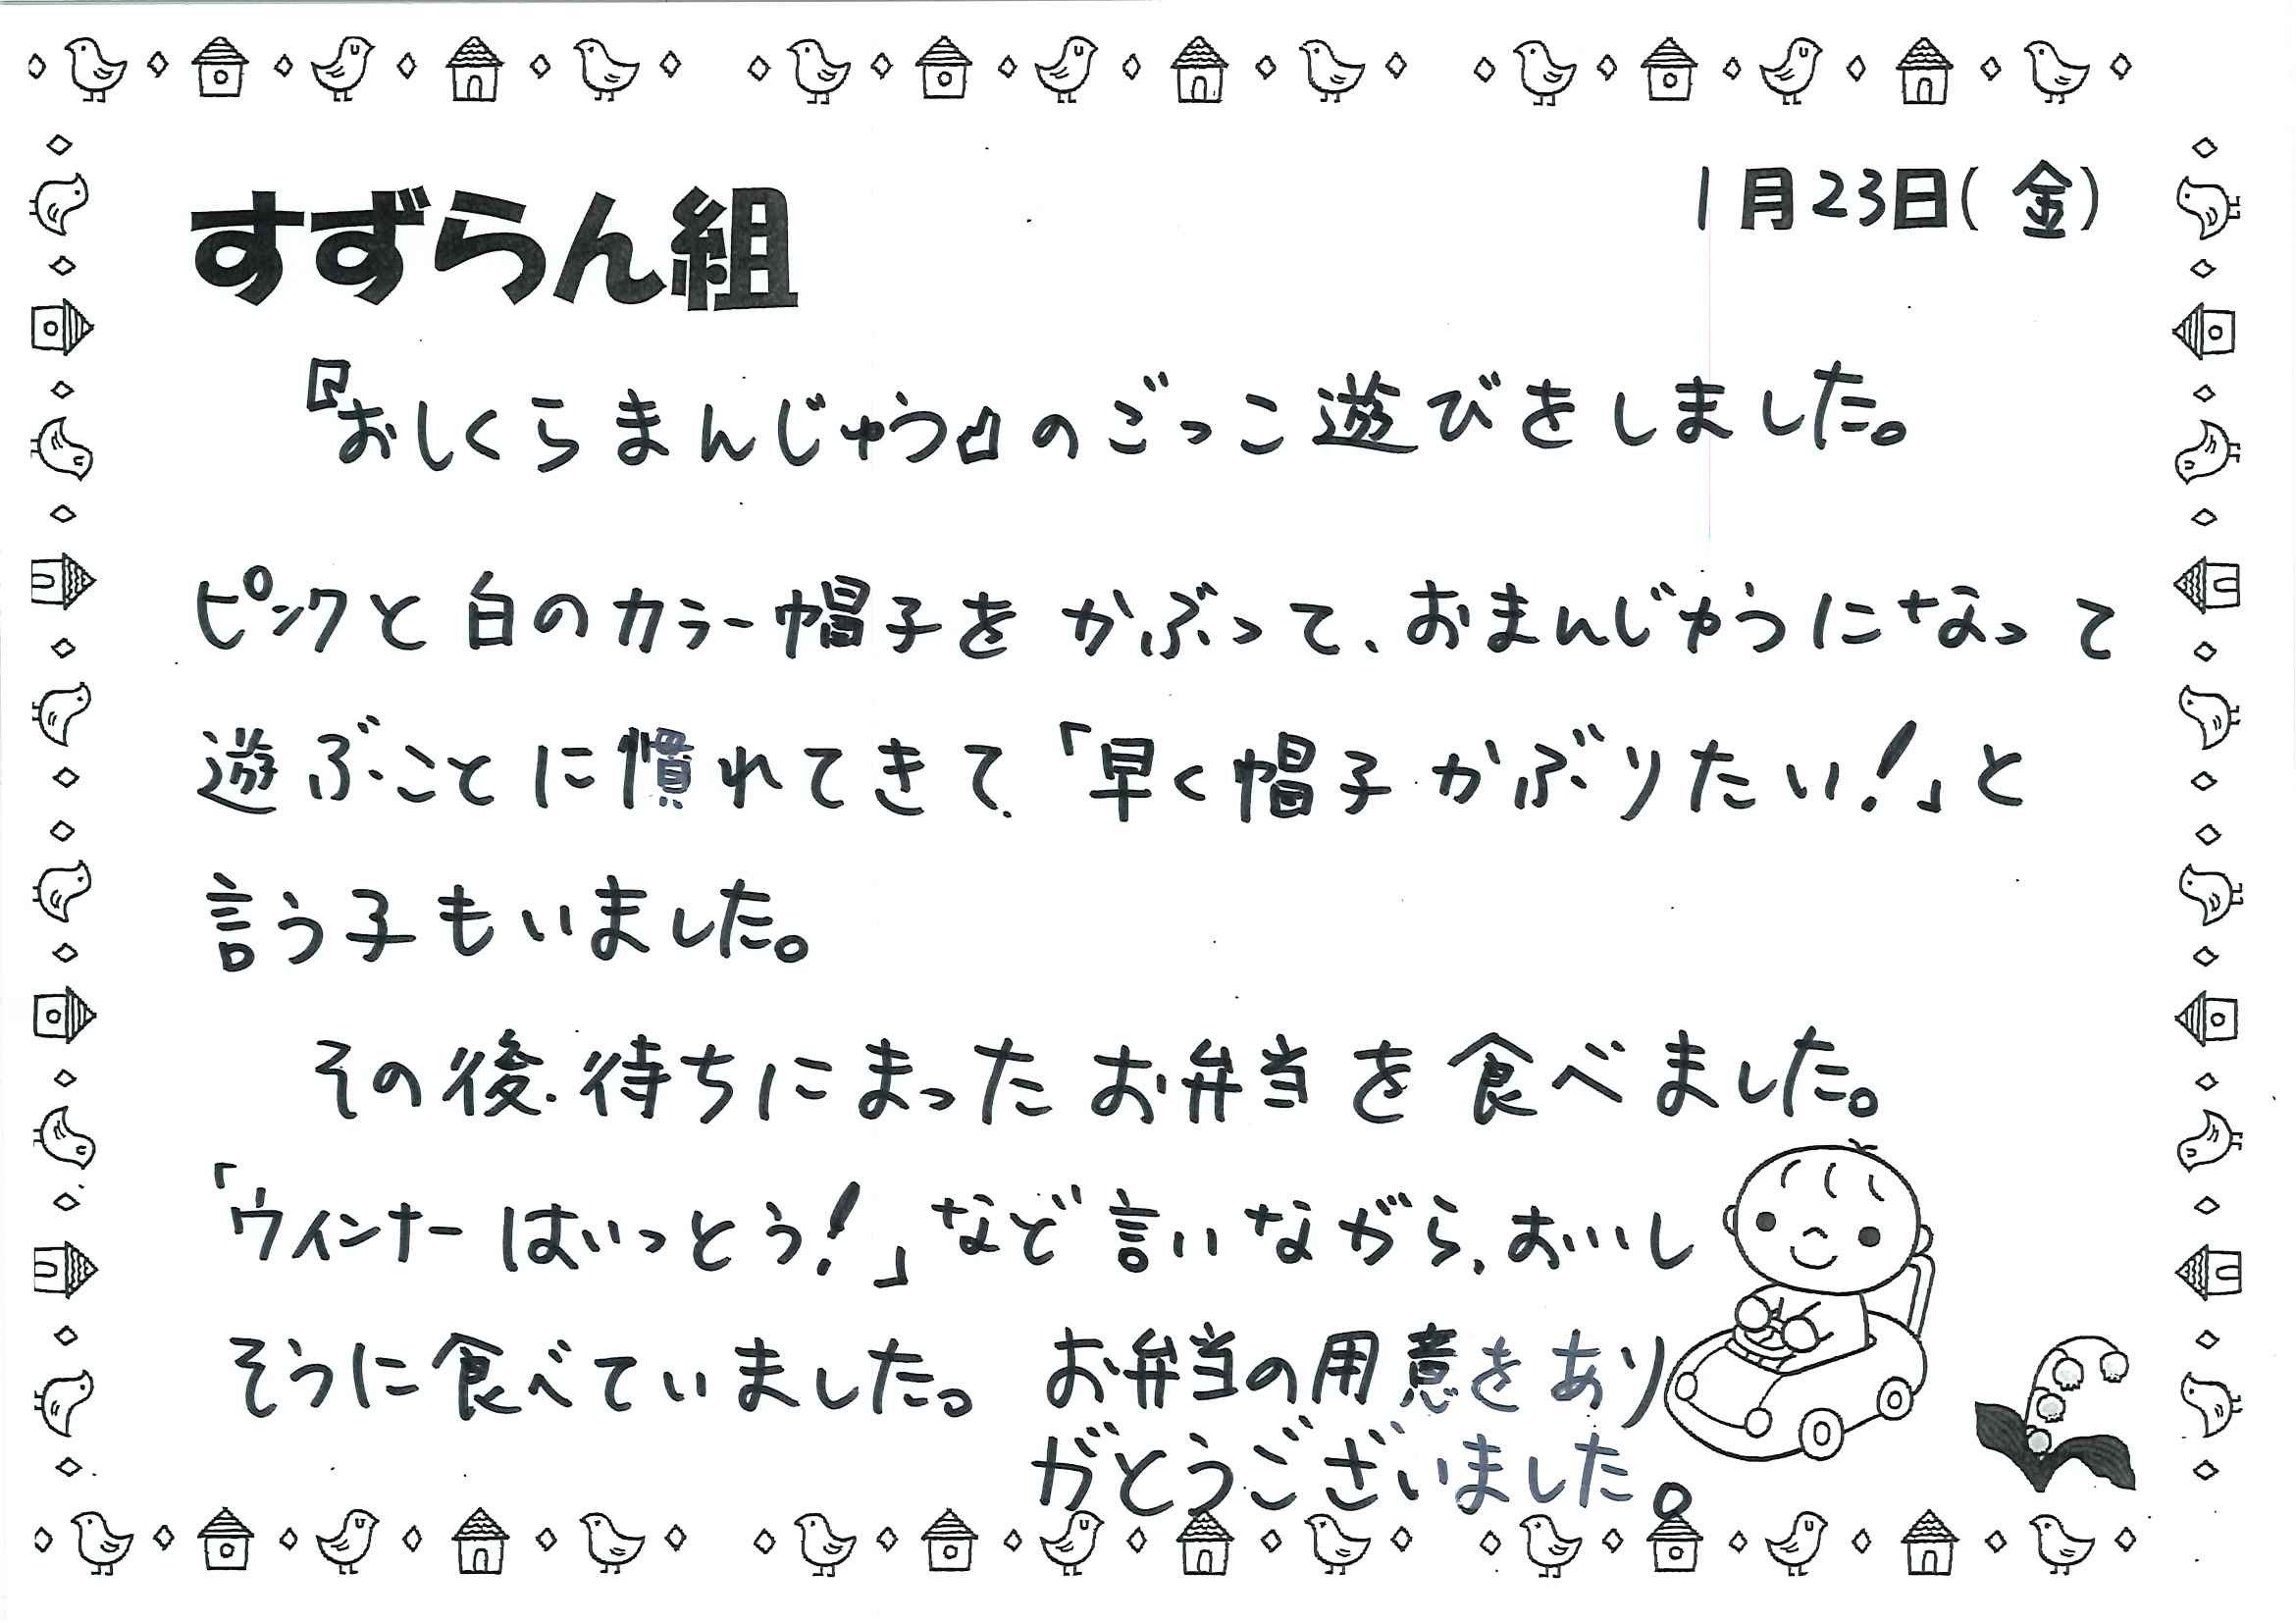 1月23日(金)
すずらん組
『おしくらまんじゅう』のごっこ遊びをしました。
ピンクと白のカラー帽子をかぶって、おまんじゅうになって
遊ぶことに慣れてきて、「早く帽子かぶりたい!」と
言う子もいました。
その後、待ちにまったお弁当を食べました。
「ウインナーはいっとう!」など言いながら、おいし
そうに食べていました。お弁当の用意をあり
がとうございました。